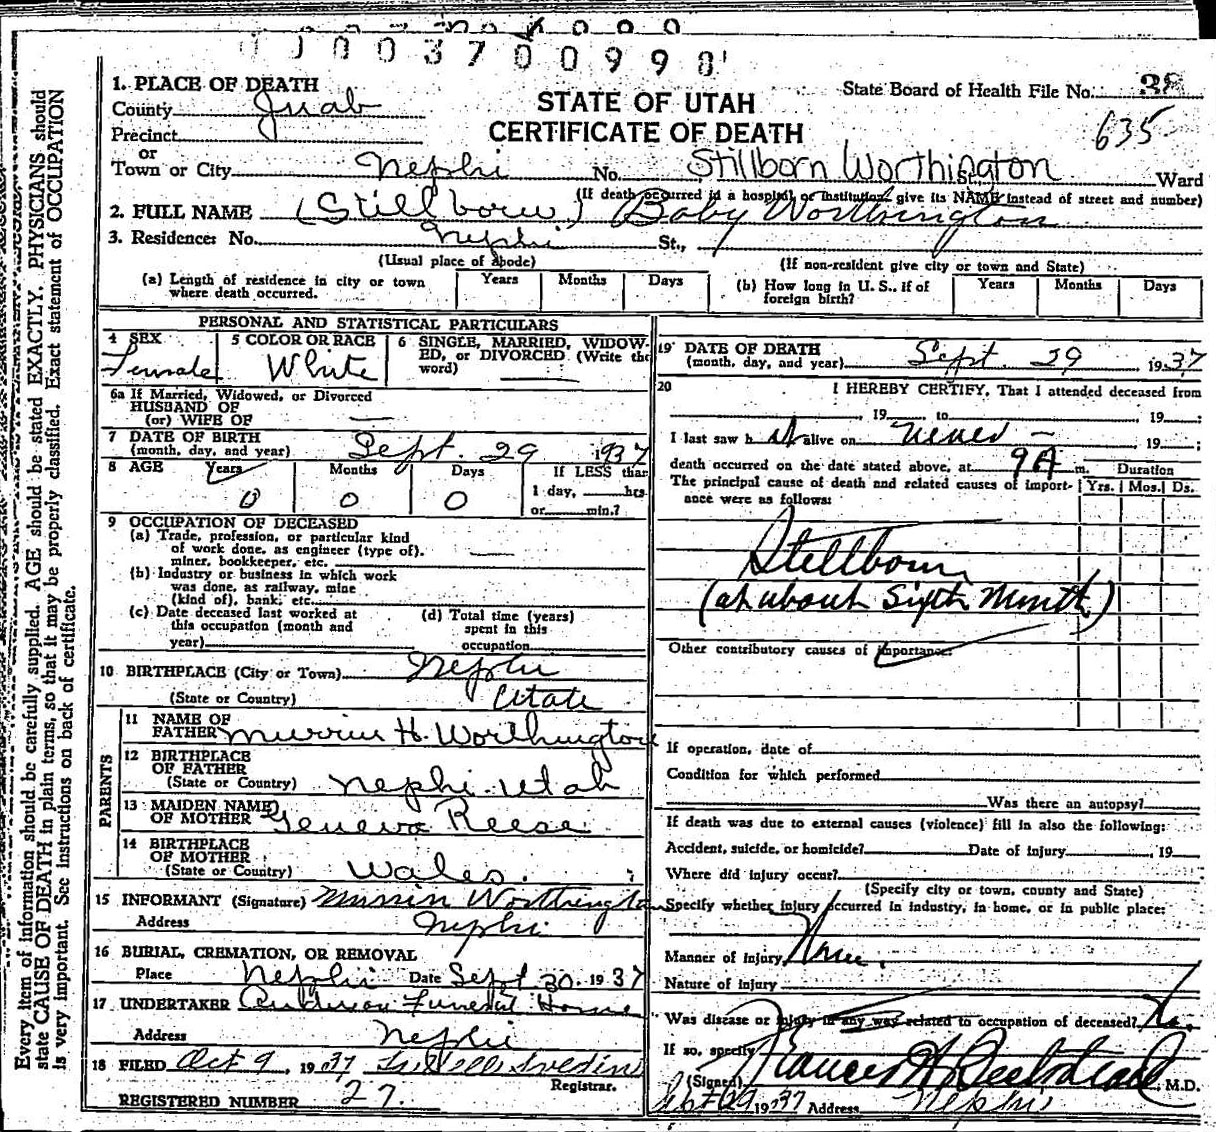 0003700998
1. PLACE OF DEATH
County Juab
Precinct
or
Town or City Nephi No. Stillborn Worthington St. Ward
STATE OF UTAH
CERTIFICATE OF DEATH
State Board of Health File No. 38
635
(If death occurred in a hospital or institution, give its NAME instead of street and number)
2. FULL NAME (Stillborn) Baby Worthington
3. Residence: No. Nephi St.,
(Usual place of abode) (If non-resident give city or town and State)
(a) Length of residence in city or town where death occurred. Years Months Days
(b) How long in U. S., if of foreign birth? Years Months Days
PERSONAL AND STATISTICAL PARTICULARS
4 SEX Female
5 COLOR OR RACE White
6 SINGLE, MARRIED, WIDOW-
ED, or DIVORCED (Write the
word)
6a If Married, Widowed, or Divorced
HUSBAND OF
(or) WIFE OF
7 DATE OF BIRTH
(month, day, and year) Sept. 29 1937
8 AGE Years Months Days If LESS than
0 0 0 1 day, hrs.
or min.?
9 OCCUPATION OF DECEASED
(a) Trade, profession, or particular kind
of work done, as engineer (type of),
miner, bookkeeper, etc.
(b) Industry or business in which work
was done, as railway, mine
(kind of), bank, etc.
(c) Date deceased last worked at
this occupation (month and
year)
(d) Total time (years)
spent in this
occupation
10 BIRTHPLACE (City or Town) Nephi
(State or Country) Utah
PARENTS
11 NAME OF
FATHER H. Worthington
12 BIRTHPLACE
OF FATHER
(State or Country) Nephi Utah
13 MAIDEN NAME
OF MOTHER Geneva Reese
14 BIRTHPLACE
OF MOTHER
(State or Country) Wales
15 INFORMANT (Signature) Worthington
Address Nephi
16 BURIAL, CREMATION, OR REMOVAL
Place Nephi Date Sept 30 1937
17 UNDERTAKER Anderson Funeral Home
Address Nephi
18 FILED Oct 9, 1937
Registrar.
REGISTERED NUMBER 27.
19 DATE OF DEATH
(month, day, and year) Sept. 29 1937
20 I HEREBY CERTIFY, That I attended deceased from
, 19 , to 19 ;
I last saw h alive on never - 19 ;
death occurred on the date stated above, at 9 A m. Duration
The principal cause of death and related causes of import-
ance were as follows: Yrs. Mos. Ds.
Stillborn
(at about Sixth Month)
Other contributory causes of importance:
If operation, date of
Condition for which performed
Was there an autopsy?
If death was due to external causes (violence) fill in also the following:
Accident, suicide, or homicide? Date of injury 19
Where did injury occur?
(Specify city or town, county and State)
Specify whether injury occurred in industry, in home, or in public place:
Manner of injury None.
Nature of injury
Was disease or injury in any way related to occupation of deceased? No.
If so, specify
(Signed) M.D.
Sept 29 1937 Address Nephi
Every item of information should be carefully supplied. AGE should be stated EXACTLY. PHYSICIANS should
state CAUSE OF DEATH in plain terms, so that it may be properly classified. Exact statement of OCCUPATION
is very important. See instructions on back of certificate.